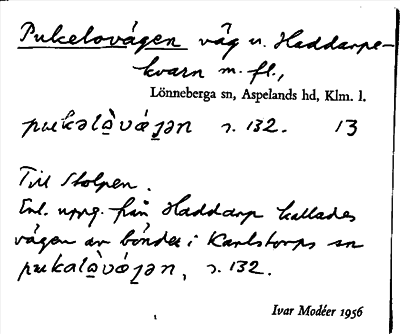 Pukelovägen väg u. Haddarpe-
kvarn m. fl.,
Lönneberga sn, Aspelands hd, Klm. l.
pukəlàvǻgən s. 132. 13
Till Stolpen.
Enl. uppg. från Haddarp kallades
vägen av bönder i Karlstorps sn
pukalàvǻgən, s. 132.
Ivar Modéer 1956